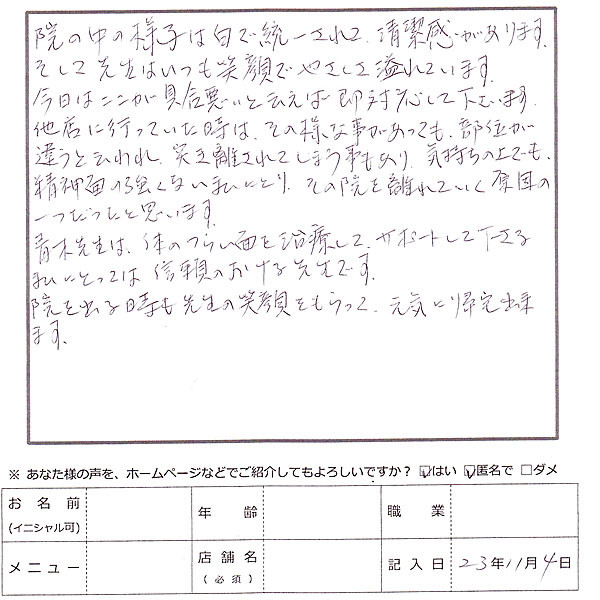 院の中の様子は白で統一されて、清潔感があります。
そして先生はいつも笑顔でやさしさ溢れています。
今日はここが具合悪いと云えば即対応して下さいます。
他店に行っていた時は、その様な事があっても、部位が
違うと云われ、突き離されてしまう事もあり、気持ちの上でも、
精神面の強くない私にとり、その院を離れていく原因の
一つだったと思います。
青木先生は、体のつらい面を治療して、サポートして下さる
私にとっては信頼のおける先生です。
院を出る時も先生の笑顔をもらって、元気になり帰宅出来
ます。
※ あなた様の声を、ホームページなどでご紹介してもよろしいですか？ ☑はい ☑匿名で □ダメ
お名前
(イニシャル可)
年齢
職業
メニュー
店舗名
（必須）
記入日 23年11月4日